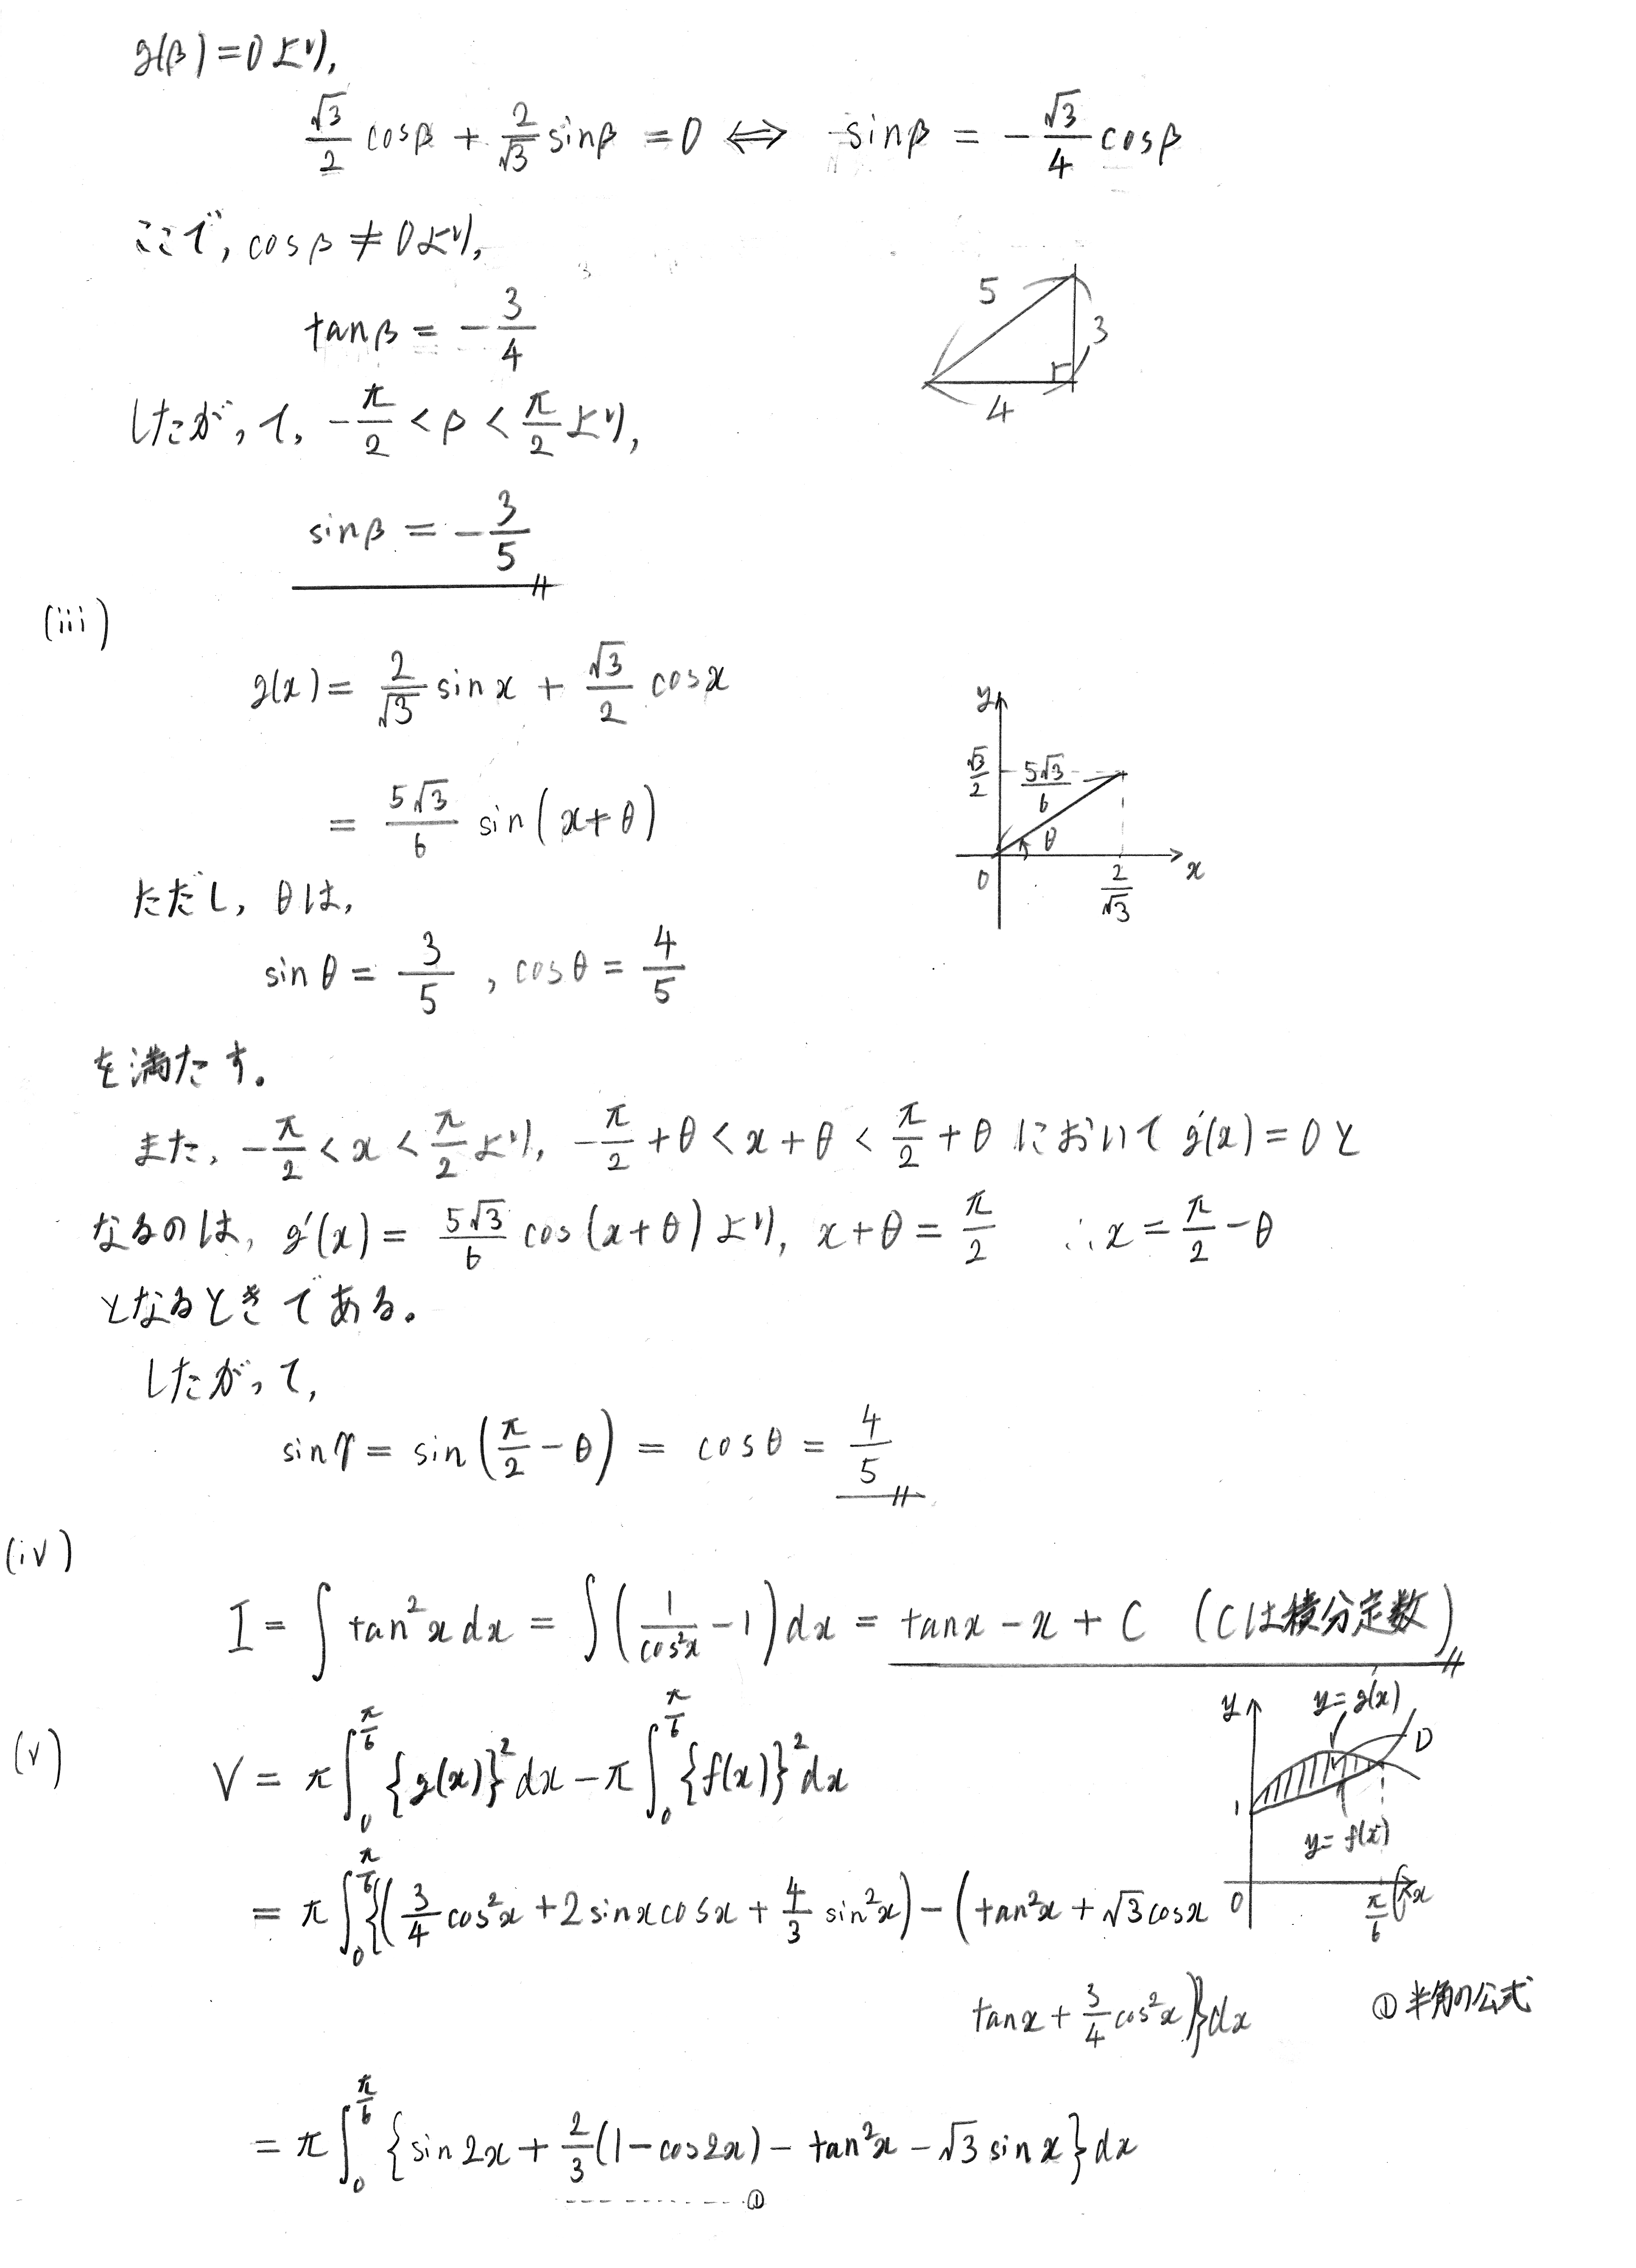 g(β)=0より,
√3/2 cosβ + 2/√3 sinβ = 0 ⇔ sinβ = -√3/4 cosβ
ここで, cosβ ≠ 0より,
tanβ = -3/4
5
3
4
したがって, -π/2 < β < π/2 より,
sinβ = -3/5
(iii)
g(x) = 2/√3 sinx + √3/2 cosx
= 5√3/6 sin(x+θ)
y
√3/2
5√3/6
θ
0
2/√3
x
ただし, θは,
sinθ = 3/5 , cosθ = 4/5
を満たす。
また, -π/2 < x < π/2 より, -π/2 + θ < x + θ < π/2 + θ において g'(x) = 0 と
なるのは, g'(x) = 5√3/6 cos(x+θ) より, x+θ = π/2 ∴ x = π/2 - θ
となるときである。
したがって,
sinγ = sin(π/2 - θ) = cosθ = 4/5
(iv)
I = ∫ tan²x dx = ∫ (1/cos²x - 1) dx = tanx - x + C (Cは積分定数)
(v)
V = π∫₀^{π/6} {g(x)}² dx - π∫₀^{π/6} {f(x)}² dx
y
y=g(x)
D
1
y=f(x)
0
π/6
x
= π∫₀^{π/6} {(3/4 cos²x + 2sinxcosx + 4/3 sin²x) - (tan²x + √3cosx
tanx + 3/4 cos²x)}dx
① 半角の公式
= π∫₀^{π/6} {sin2x + 2/3(1-cos2x) - tan²x - √3 sinx}dx
①